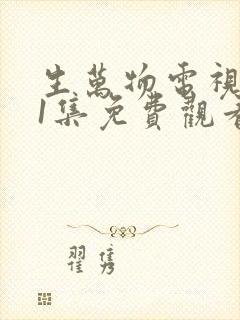 生萬物電視
1集免費觀看
翟雋